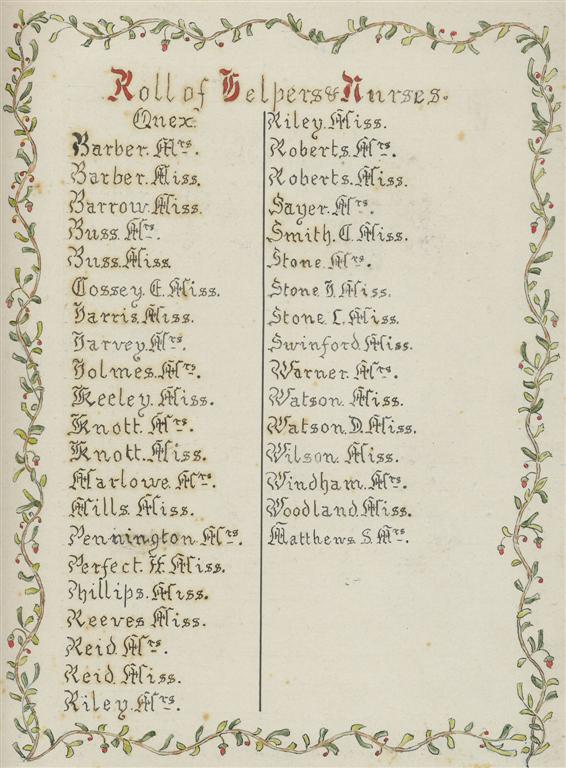 Roll of Helpers & Nurses.
Quex.
Barber. Mrs.
Barber. Miss.
Barrow. Miss.
Buss. Mrs.
Buss. Miss
Cossey. E. Miss.
Harris. Miss.
Harvey. Mrs.
Holmes. Mrs.
Keeley. Miss.
Knott. Mrs.
Knott. Miss.
Marlowe. Mrs.
Mills. Miss.
Pennington. Mrs.
Perfect. H. Miss.
Phillips. Miss.
Reeves. Miss.
Reid. Mrs.
Reid. Miss.
Riley. Mrs.
Riley. Miss.
Roberts. Mrs.
Roberts. Miss.
Sayer. Mrs.
Smith. C. Miss.
Stone. Mrs.
Stone. J. Miss.
Stone. L. Miss.
Swinford. Miss.
Warner. Mrs.
Watson. Miss.
Watson. D. Miss.
Wilson. Miss.
Windham. Mrs.
Woodland. Miss.
Matthews. S. Mrs.